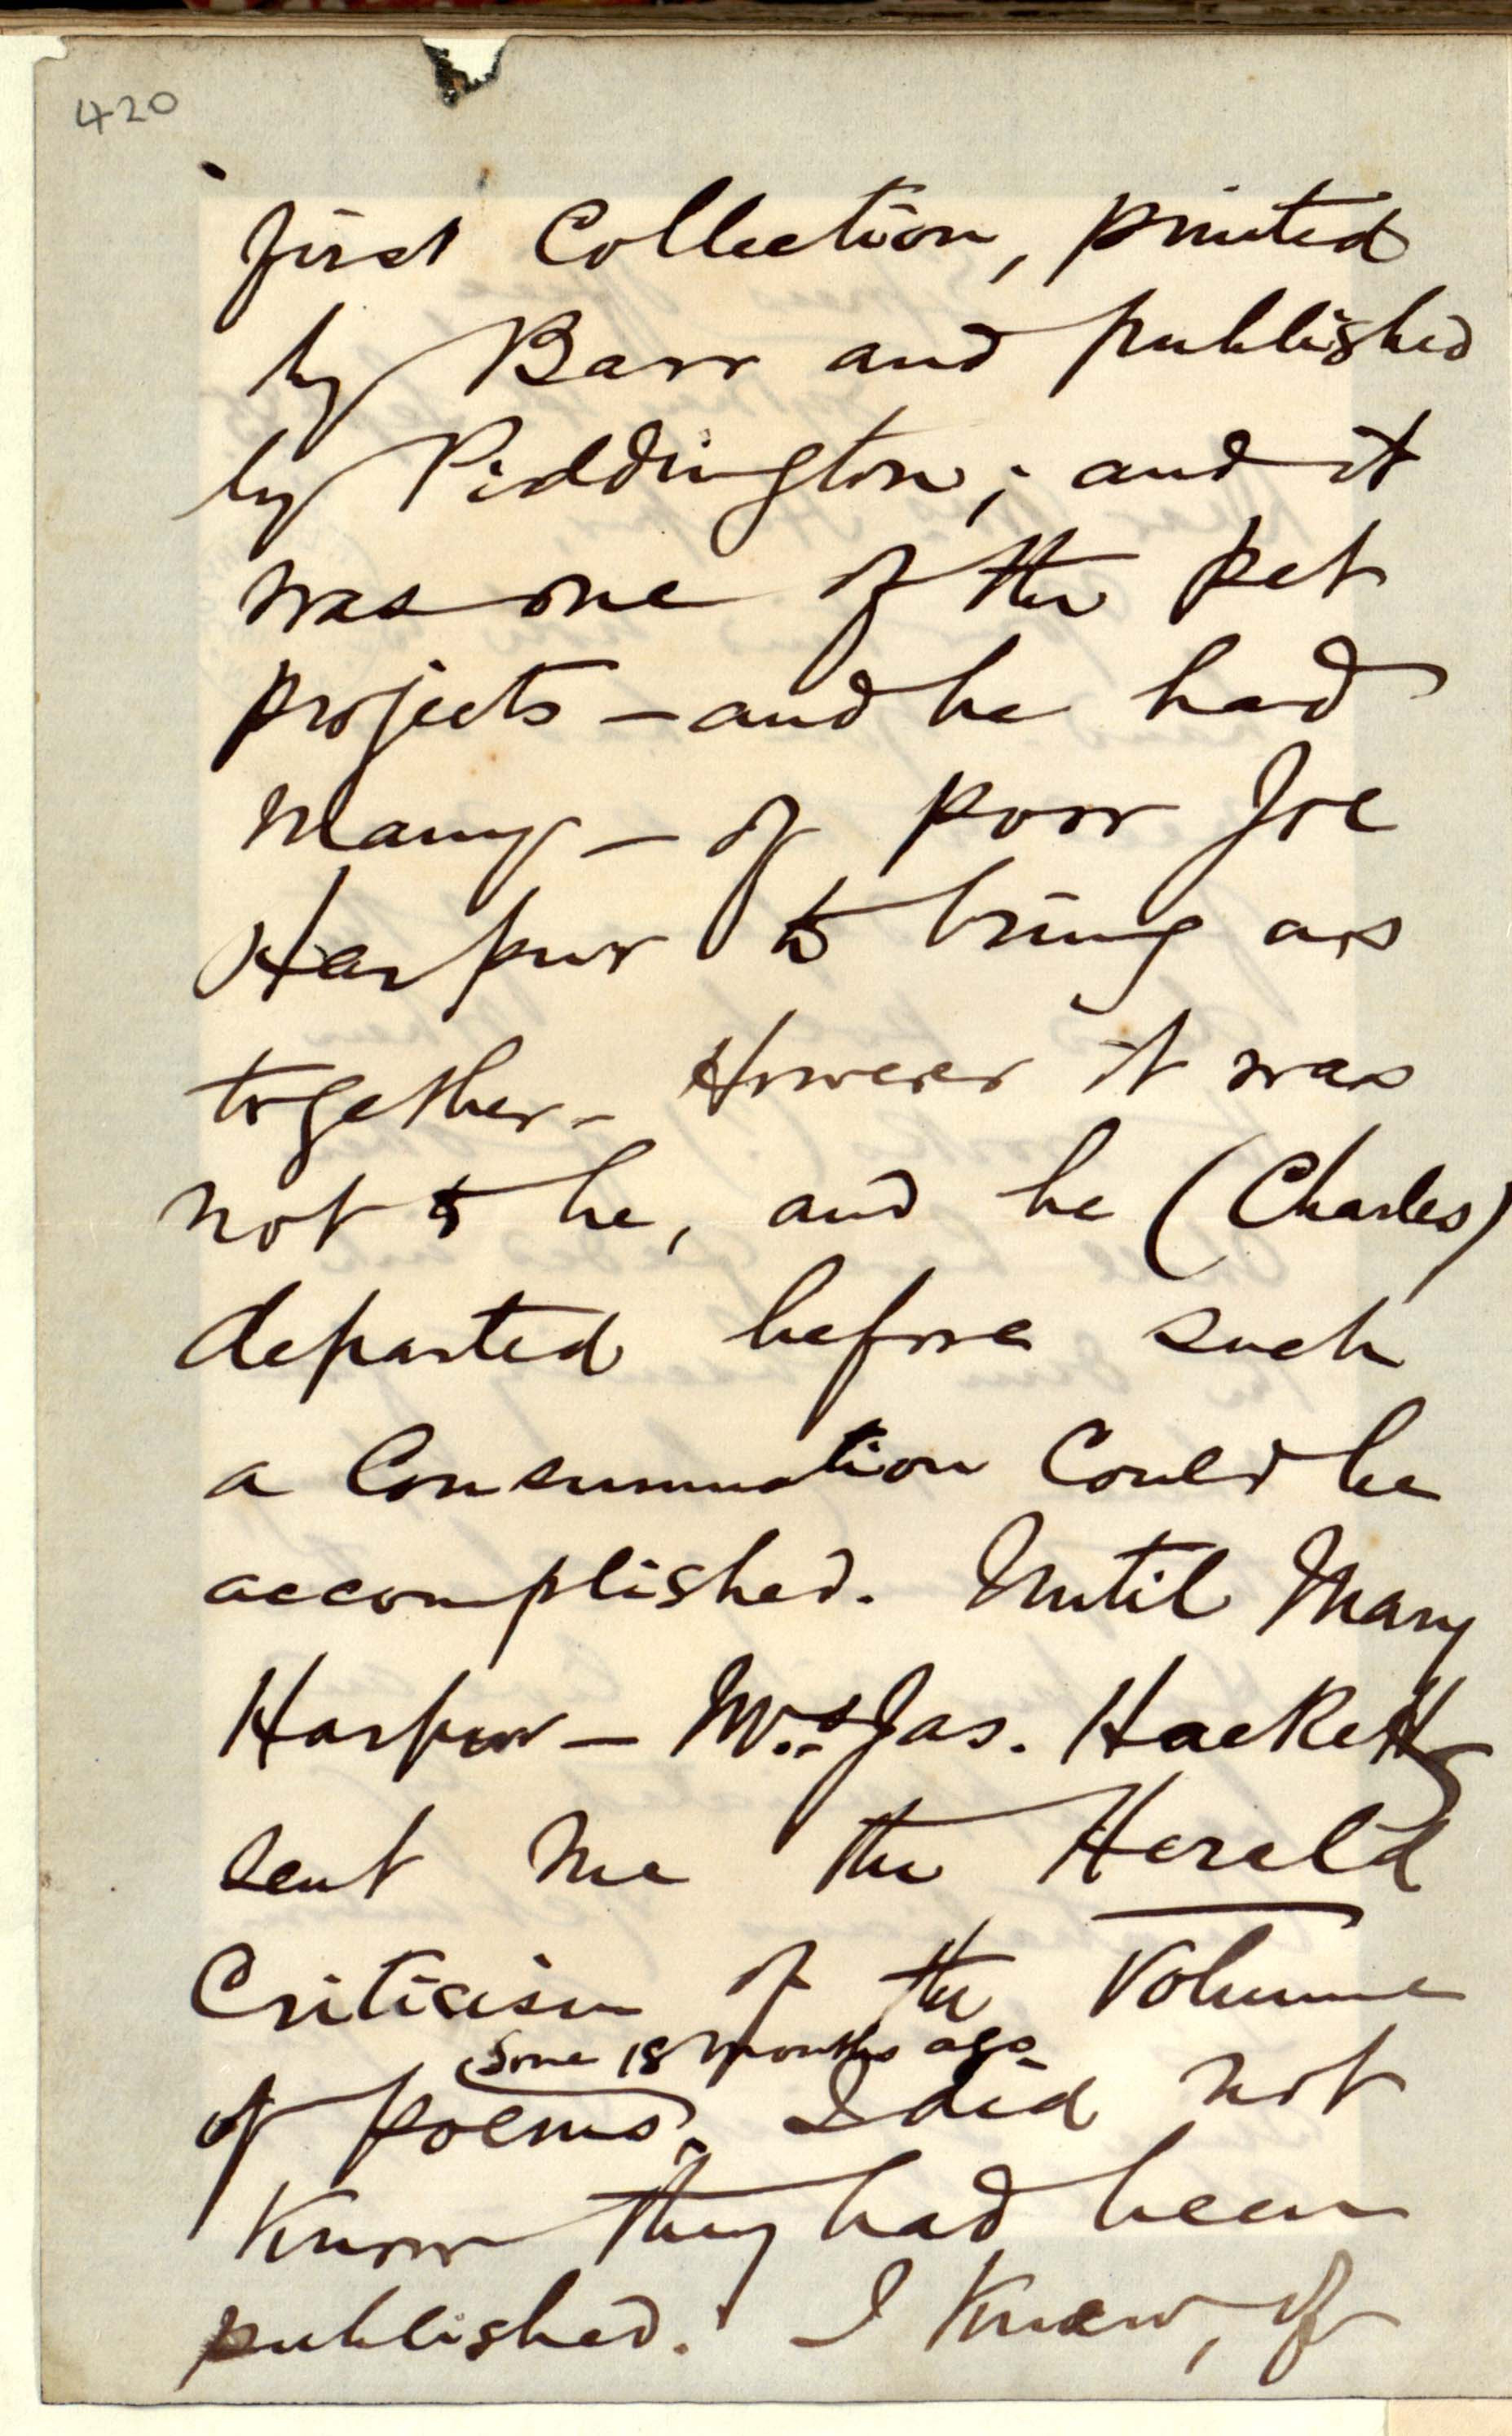 420
first Collection, printed
by Barr and published
by Piddington; and it
was one of the pet
projects – and he had
many – of poor Joe
Harpur to bring us
together – However it was
not to be, and he (Charles)
departed before such
a Consummation Could be
accomplished. Until Mary
Harpur – Mrs Jas. Hackett
sent me the Herald
Criticism of the Volume
some 18 months ago
of poems, I did not
know they had been
published. I knew, of